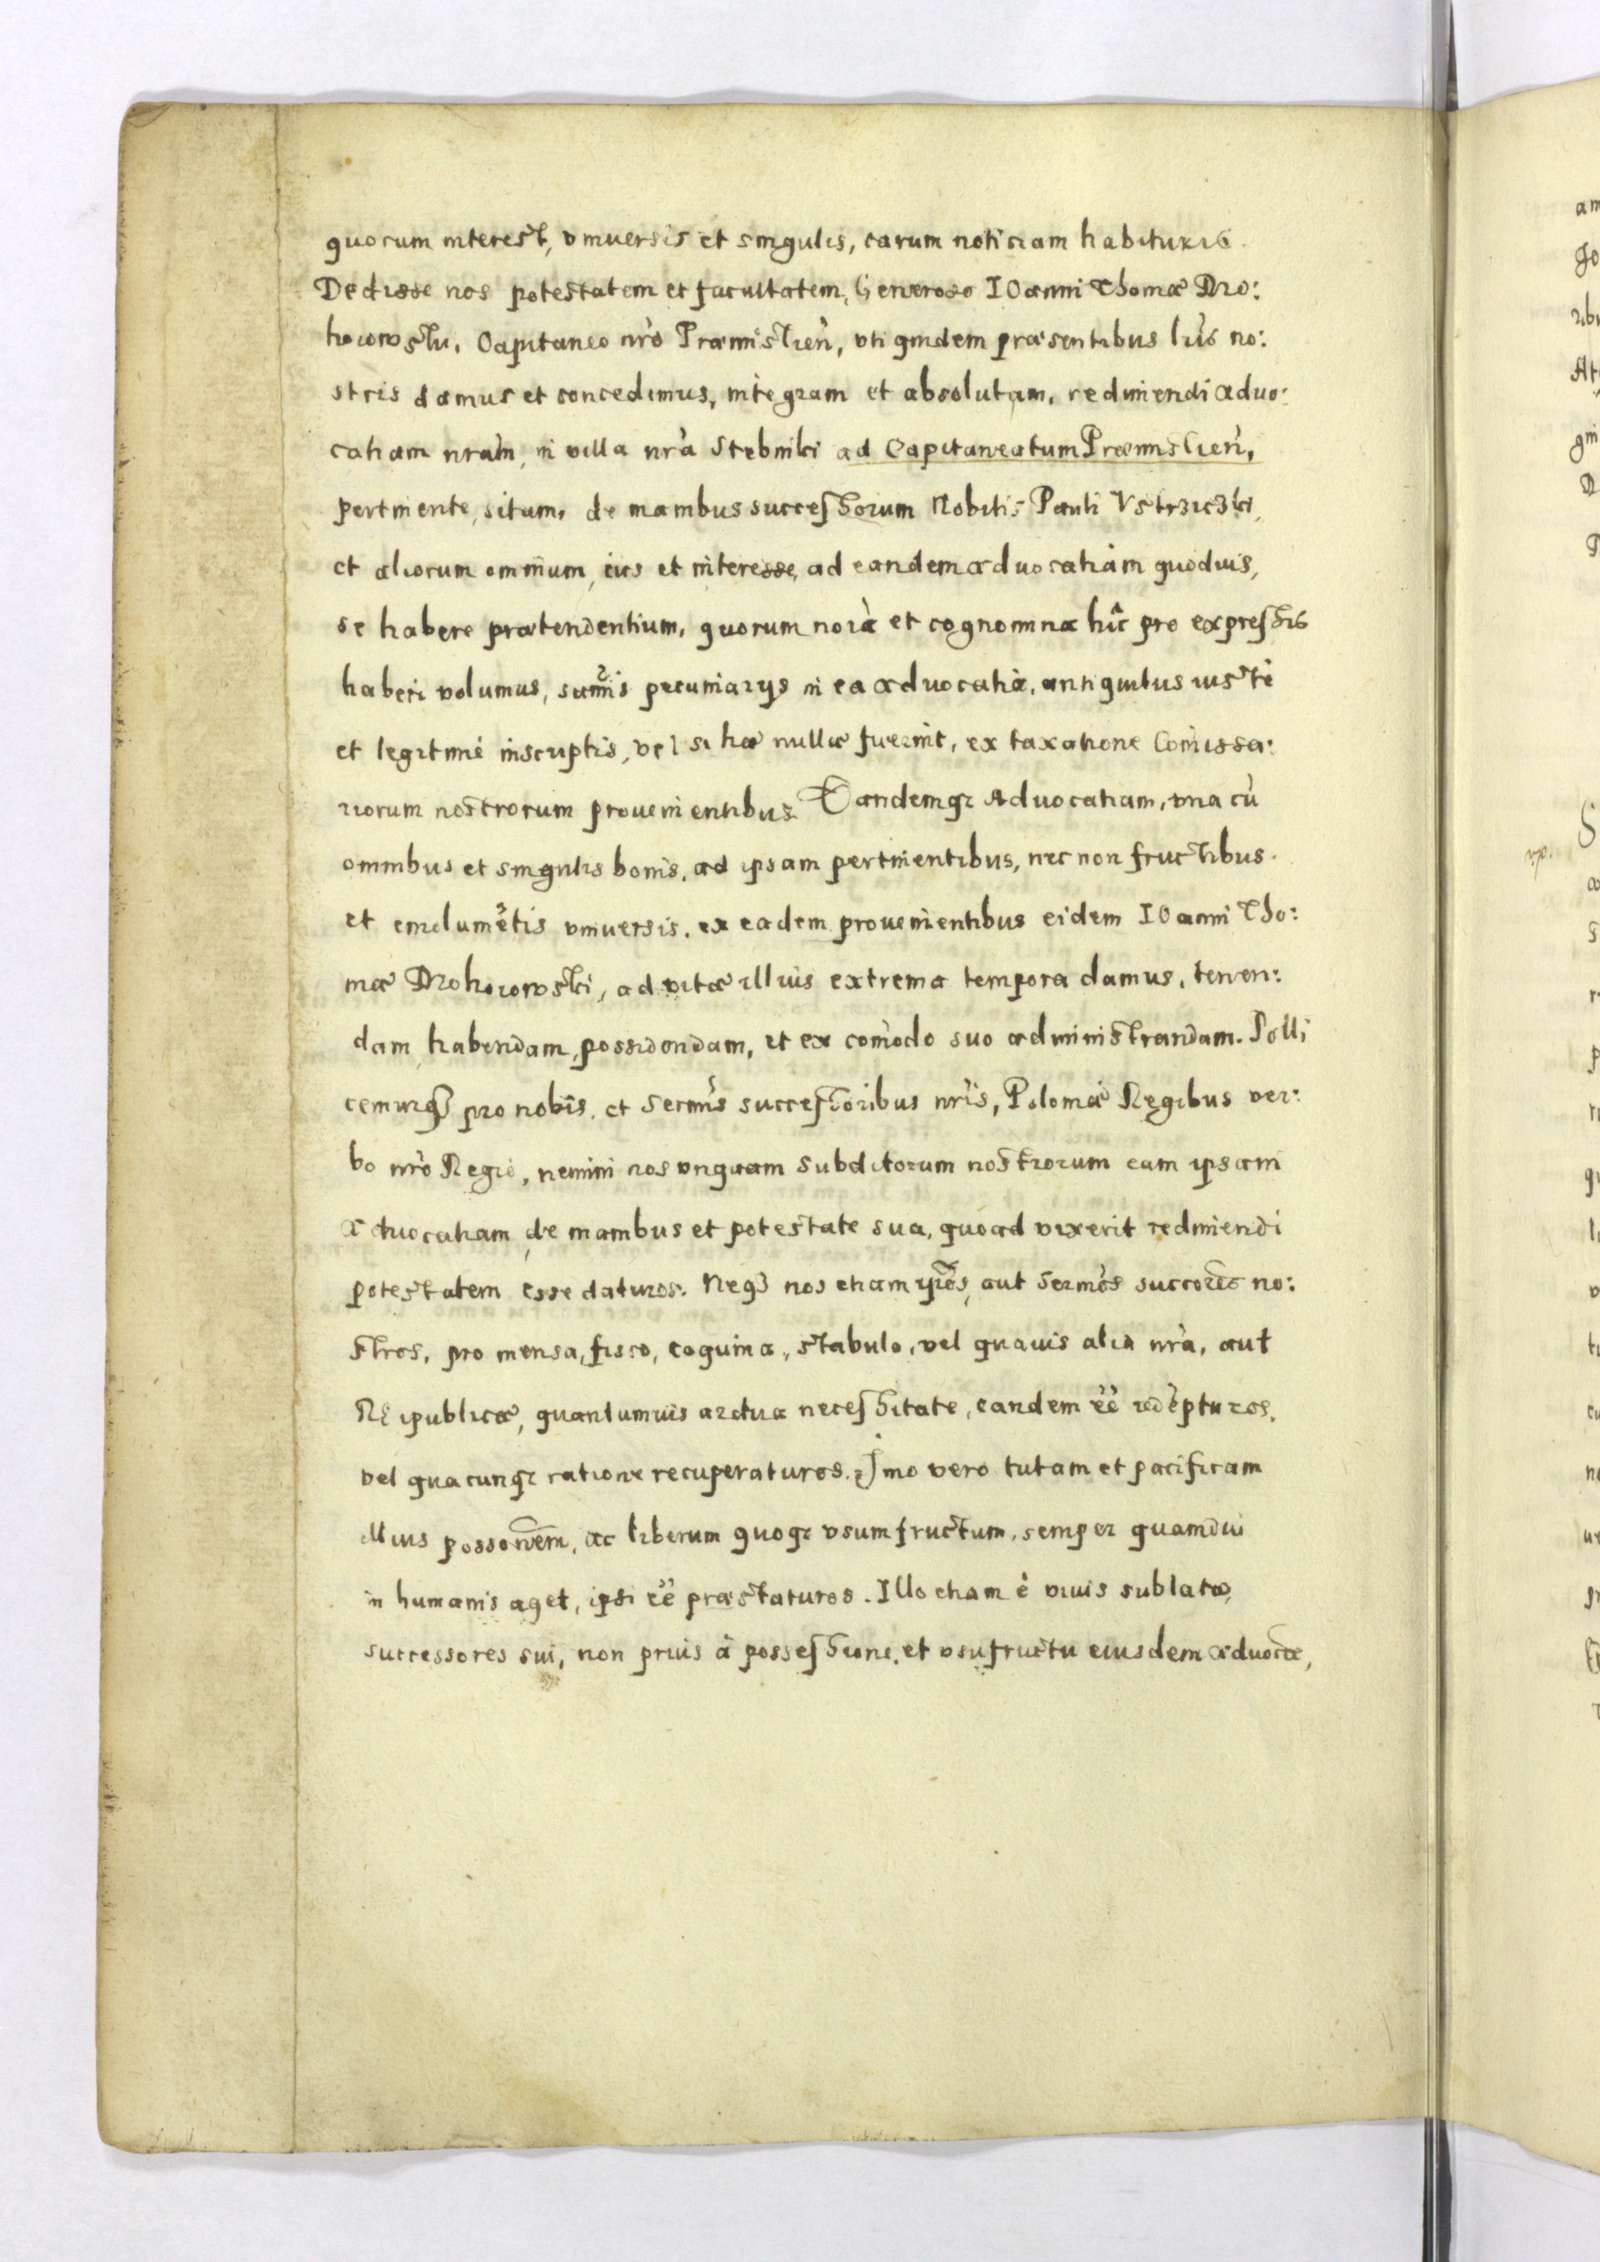 quorum interest, vniuersis et singulis, earum noticiam habituris.
Dedisse nos potestatem et facultatem, Generoso IOanni Thomæ Dro:
hoiowski, Capitaneo nrò Præmislień, vti quidem præsentibus lrìs no:
stris damus et concedimus, integram et absolutam, redimendi aduo:
catiam nràm, in villa nrà Stebniki ad Capitaneatum Præmislień,
pertinente, sitam, de manibus successorum Nobilis Pauli Vstrziczki,
et aliorum omnium, ius et interesse, ad eandem aduocatiam quoduis,
se habere prætendentium, quorum noìa et cognomina hîc pro expressis
haberi volumus, summis pecuniarijs in ea aduocatia, antiquitus iustè
et legitimè inscriptis, vel si hæ nullæ fuerint, ex taxatione Comissa:
riorum nostrorum prouenientibus. Eandemq; Aduocatiam, vna cù
omnibus et singulis bonis, ad ipsam pertinentibus, nec non fructibus.
et emolumētis vniuersis. ex eadem prouenientibus eidem IOanni Tho:
mæ Drohoiowski, ad vitæ illius extrema tempora damus, tenen:
dam, habendam, possidendam, et ex comodo suo administrandam. Polli
cemurq; pro nobis, et Sermìs successoribus nrìs, Poloniæ Regibus ver:
bo nrò Regio, nemini nos vnquam subditorum nostrorum eam ipsam
aduocatiam de manibus et potestate sua, quoad vixerit redimendi
potestatem esse daturos. Neq; nos etiam ipsos, aut Sermòs succores no:
stros, pro mensa, fisco, coquina, stabulo, vel quauis alia nrà, aut
Reipublicæ, quantumuis ardua necessitate, eandem eè redèpturos,
vel quacunq; ratione recuperaturos. Imo vero tutam et pacificam
illius possonem, ac liberum quoq; vsumfructum, semper quamdiu
in humanis aget, ipsi eè præstaturos. Illo etiam è viuis sublato,
successores sui, non prius à possessione, et vsufructu eiusdem aduocæ,